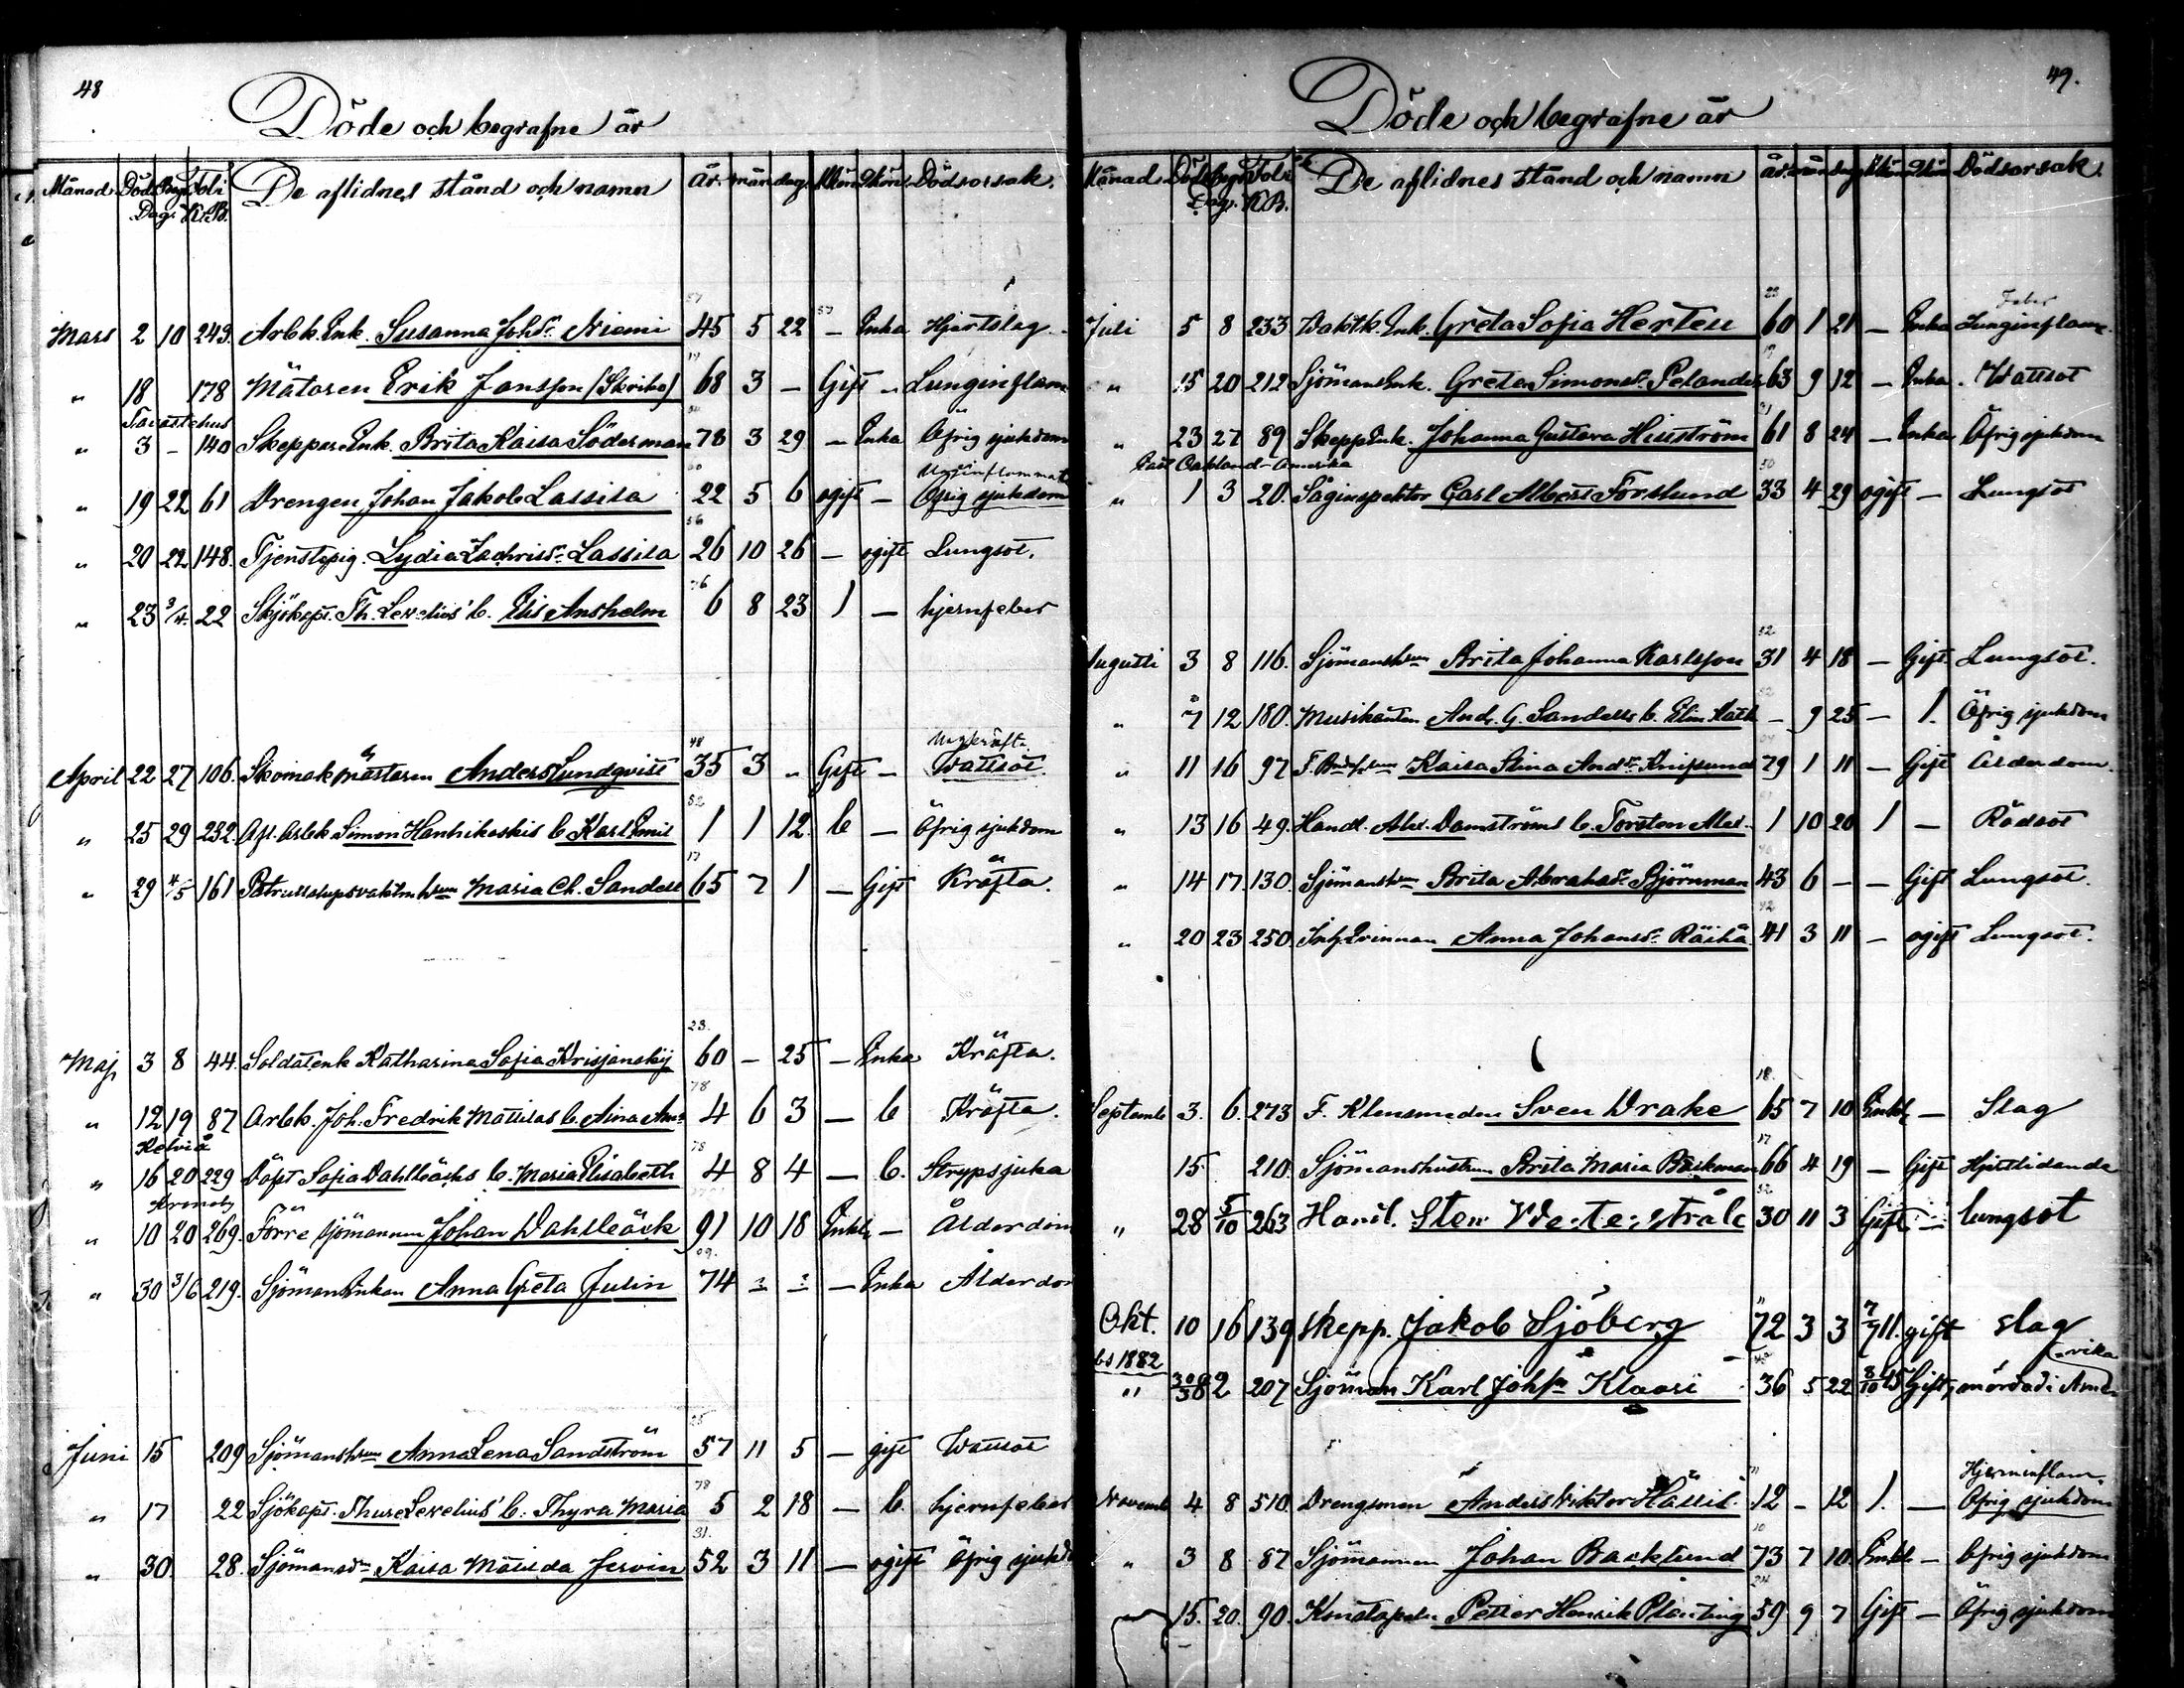 48
Döde och begrafne år
Månad Död Begr. Foli De aflidnes stånd och namn år mån dag Mkön Qkön Dödsorsak.
Dag. K.B.
57 57
Mars 2 10 249. Arbk. Enk. Susanna Johsdr. Niemi 45 5 22 — Enka Hjertslag
" 18 178 Mätaren Erik Jansson (Skriko) 68 3 — Gift — Lunginflam
Tavastehus
" 3 — 140 Skeppare Enk. Brita Kaisa Söderman 78 3 29 — Enka Öfrig sjukdom
" 19 22 61 Drengen Johan Jakob Lassila 22 5 6 ogift — Öfrig sjukdom
56
" 20 22 148. Tjenstepig. Lydia Zachrisdr. Lassila 26 10 26 — ogift Lungsot.
76
" 23 3/4. 22 Sjökapt. Th. Sevelius' b. Elis Anshelm 6 8 23 1 — hjernfeber
48
April 22 27 106. Skomakmästaren Anders Lundqvist 35 3 " Gift — Wattsot.
82
" 25 29 232. Afl. Arbk Simon Hanhikoskis b Karl Emil 1 1 12 b — Öfrig sjukdom
17
" 29 4/5 161 Maria Ch. Sandell 65 7 1 — Gift Kräfta.
23.
Maj 3 8 44. Soldatenk Katharina Sofia Krisjanskij 60 — 25 — Enka Kräfta.
78
" 12 19 87 Arbk. Joh. Fredrik Mattilas b. Aina 4 6 3 — b Kräfta.
Kelviå
78
" 16 20 229 Sofia Dahlbäcks b. Maria Elisabeth 4 8 4 — b. Strypsjuka
Kronoby
" 10 20 269. Förre sjömannen Johan Dahlbäck 91 10 18 Enkl. — Ålderdom
09.
" 30 3/6 219. Sjömansenkan Anna Greta Julin 74 — — — Enka Ålderdo
25
Juni 15 209 Sjömanshun Anna Lena Sandström 57 11 5 — gift Wattsot
78
" 17 22 Sjökapt. Thure Sevelius' b. Thyra Maria 5 2 18 — b. hjernfeber
31.
" 30. 28. Sjömansdr. Kaisa Matilda Jervin 52 3 11 — ogift Öfrig sjukdo
49.
Döde och begrafne år
Månad Död Begr. Foli De aflidnes stånd och namn år mån dag Mkön Qkön Dödsorsak.
Dag. K.B.
23 Feber
Juli 5 8 233 Waktk. Enk. Greta Sofia Herten 60 1 21 — Enka Lunginflam.
19
" 15 20 212 Sjömansenk. Greta Simonsdr. Pelander 63 9 12 — Enka. Wattsot
21
" 23 27 89 Skepp Enk. Johanna Gustava Hiuström 61 8 24 — Enka Öfrig sjukdom
East Oakland - Amerika
50
" 1 3 20. Såginspektor Carl Albert Forslund 33 4 29 ogift — Lungsot
52
Augusti 3 8 116. Sjömanshun Brita Johanna Karlsson 31 4 18 — Gift. Lungsot.
82
" 7 12 180. Musikanten And. G. Sandells b. Elin Math — 9 25 — 1. Öfrig sjukdom
" 11 16 97 Kaisa Stina Andsdr. Knifsund 79 1 11 — Gift Ålderdom.
" 13 16 49. Handl. Alex. Damströms b. Torsten Alex. 1 10 20 1 — Rödsot
" 14 17. 130. Sjömanshun Brita Abrahadr. Björnman 43 6 — — Gift Lungsot.
42
" 20 23 250. Inh.Qvinnan Anna Johansdr. Räihä 41 3 11 — ogift Lungsot.
18.
Septemb 3. 6. 273 F. Klensmeden Sven Drake 65 7 10 Enkl. — Slag
17
15 210. Sjömanshustrun Brita Maria Bäckman 66 4 19 — Gift Hjertlidande
52
" 28 5/10 263 Handl. Sten Westerstråle 30 11 3 Gift — lungsot
Okt. 10 16 139 skepp. Jakob Sjöberg 72 3 3 gift slag
1882
" 207 Sjöman Karl Johsn Klaari 36 5 22 Gift, mördad i Ame-
rika
Hjerninflam.
Novemb 4 8 510. Drengsonen Anders Viktor Hassil. 12 — 12 1. — Öfrig sjukdom
10
" 3 8 87 Sjömannen Johan Backlund 73 7 10. Enkl. — Öfrig sjukdom
24
15. 20. 90. Konstapeln Petter Henrik Planting 59 9 7 Gift — Öfrig sjukdom